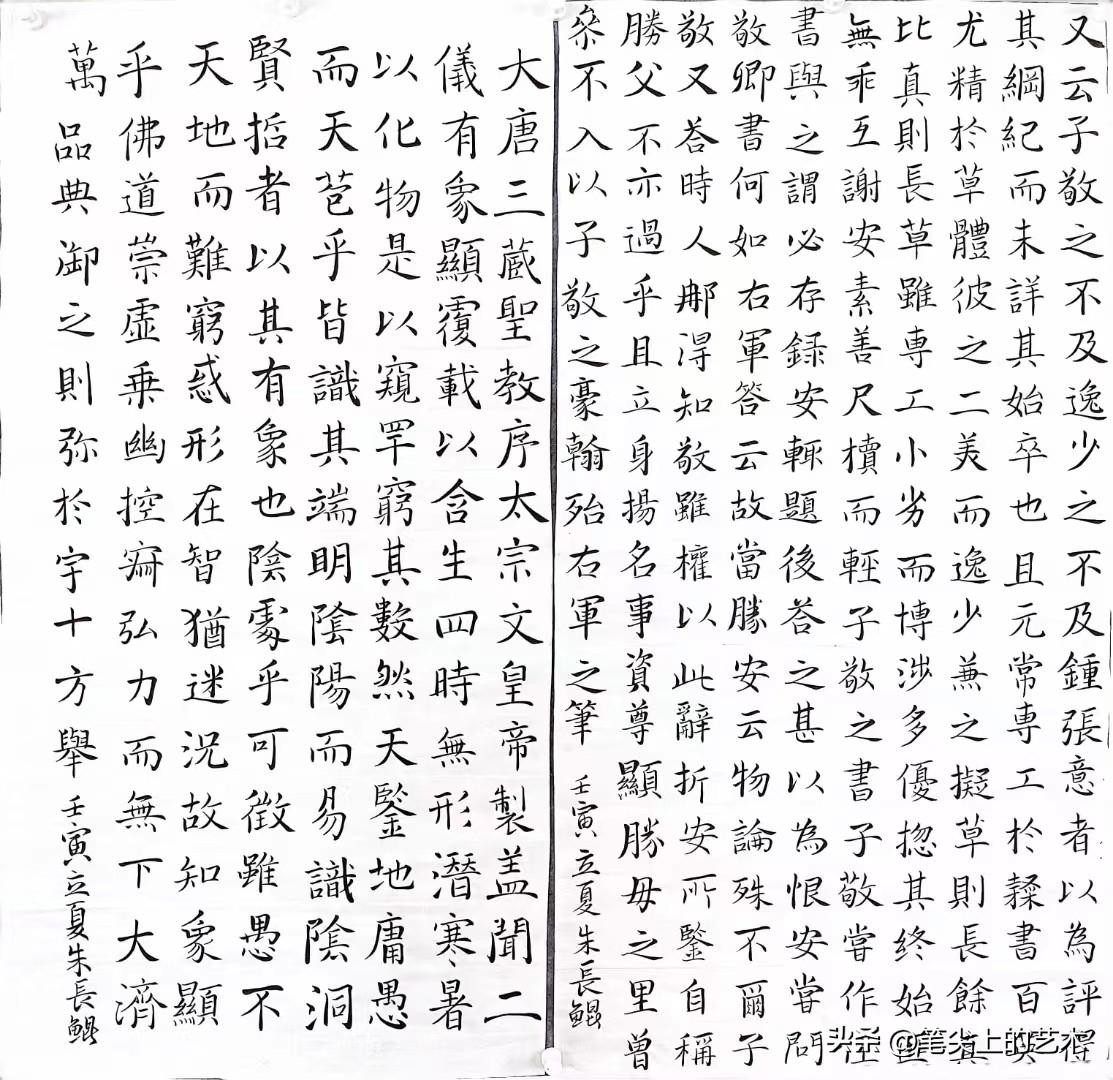 又云子敬之不及逸少之不及鍾張意者以為評得
其綱紀而未詳其始卒也且元常専工於隸書百英
尤精於草體彼之二美而逸少兼之擬草則長餘真
比真則長草雖専工小劣而博涉多優揔其終始
無乖互謝安素善尺櫝而輕子敬之書子敬嘗作佳
書與之謂必存録安輒題後答之甚以為恨安嘗問
敬卿書何如右軍答云故當勝安云物論殊不爾子
敬又答時人那得知敬雖權以此辭折安所鑒自稱
勝父不亦過乎且立身揚名事資尊顯勝母之里曾
參不入以子敬之豪翰殆右軍之筆 壬寅立夏朱長鯤
大唐三蔵聖教序太宗文皇帝製盖聞二
儀有象顯覆載以含生四時無形潛寒暑
以化物是以窺罕窮其數然天鑒地庸愚
而天苞乎皆識其端明陰陽而易識陰洞
賢哲者以其有象也陰處乎可徵雖愚不
天地而難窮惑形在智猶迷況故知象顯
乎佛道崇虛乗幽控寂弘力而無下大濟
萬品典御之則弥於宇十方舉 壬寅立夏朱長鯤
头条 @笔尖上的艺术